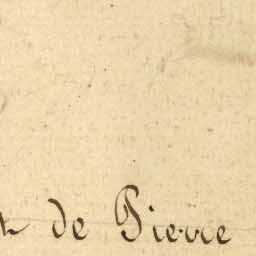 de Pierre